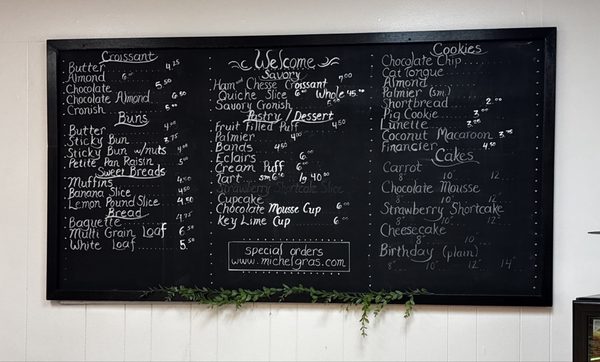 Croissant
Butter 4.25
Almond 6.00
Chocolate 5.50
Chocolate Almond 6.50
Cronish 5.00
Buns
Butter 4.00
Sticky Bun 3.75
Sticky Bun w/nuts 4.00
Petite Pan Raisin 5.00
Sweet Breads
Muffins 4.50
Banana Slice 4.50
Lemon Pound Slice 4.50
Bread
Baguette 4.75
Multi Grain Loaf 6.50
White Loaf 5.50
Welcome
Savory
Ham and Cheese Croissant 7.00
Quiche Slice 6.00 Whole 45.00
Savory Cronish 5.50
Pastry / Dessert
Fruit Filled Puff 4.50
Palmier 4.00
Bands 4.50
Eclairs 6.00
Cream Puff 6.00
Tart sm 6.00 lg 40.00
Strawberry Shortcake Slice
Cupcake 6.00
Chocolate Mousse Cup 6.00
Key Lime Cup 6.00
special orders
www.michelgras.com
Cookies
Chocolate Chip
Cat Tongue
Almond
Palmier (sm)
Shortbread 2.00
Pig Cookie 3.00
Lunette 3.50
Coconut Macaroon 3.75
Financier 4.50
Cakes
Carrot
8" 10" 12"
Chocolate Mousse
8" 10" 12"
Strawberry Shortcake
8" 10" 12"
Cheesecake
8" 10"
Birthday (plain)
8" 10" 12" 14"